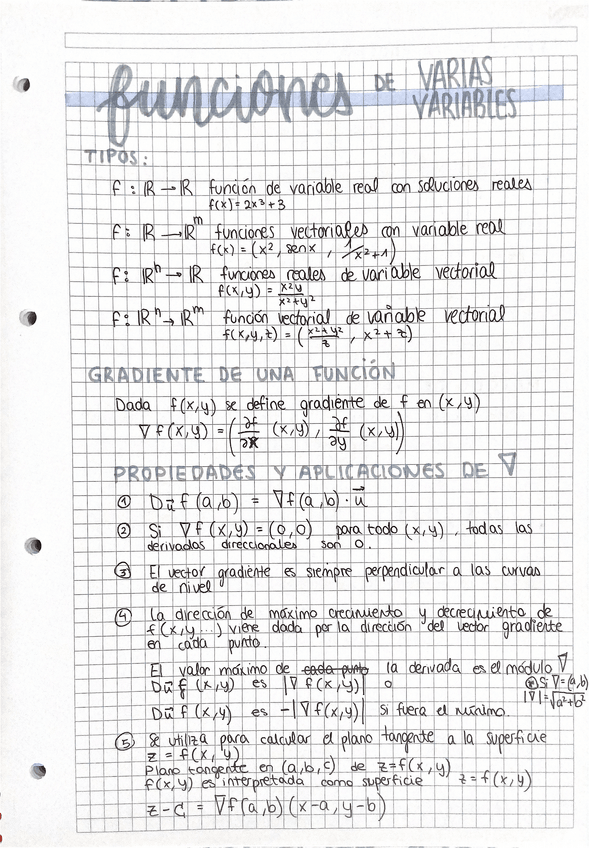 funciones DE VARIAS VARIABLES
TIPOS:
f: ℝ → ℝ función de variable real con soluciones reales
f(x) = 2x³+3
f: ℝ → ℝᵐ funciones vectoriales con variable real
f(x) = (x², senx, 1/x²+1)
f: ℝⁿ → ℝ funciones reales de variable vectorial
f(x,y) = x²y / x²+y²
f: ℝⁿ → ℝᵐ función vectorial de variable vectorial
f(x,y,z) = (x²+y²/z, x²+z)
GRADIENTE DE UNA FUNCIÓN
Dada f(x,y) se define gradiente de f en (x,y)
∇f(x,y) = (∂f/∂x (x,y), ∂f/∂y (x,y))
PROPIEDADES Y APLICACIONES DE ∇
① Du⃗ f(a,b) = ∇f(a,b)·u⃗
② Si ∇f(x,y) = (0,0) para todo (x,y), todas las
derivadas direccionales son 0.
③ El vector gradiente es siempre perpendicular a las curvas
de nivel
④ La dirección de máximo crecimiento y decrecimiento de
f(x,y...) viene dada por la dirección del vector gradiente
en cada punto.
El valor máximo de cada punto la derivada es el módulo ∇
Du⃗ f(x,y) es |∇f(x,y)| o
⊛ Si ∇=(a,b)
|∇|=√a²+b²
Du⃗ f(x,y) es -|∇f(x,y)| si fuera el mínimo.
⑤ Se utiliza para calcular el plano tangente a la superficie
z = f(x,y)
Plano tangente en (a,b,c) de z=f(x,y)
f(x,y) es interpretada como superficie z=f(x,y)
z-c = ∇f(a,b)(x-a, y-b)